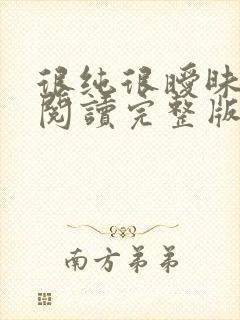 很纯很曖昧
閱讀完整版
南方弟弟